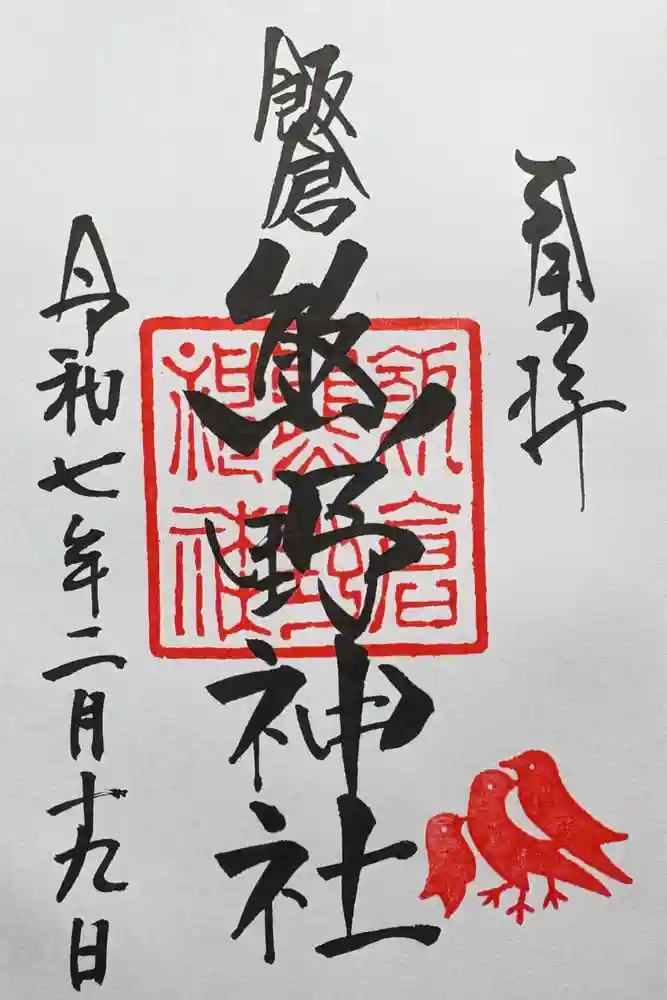 奉拝
飯倉
熊野神社
飯倉熊野神社
令和七年二月十九日